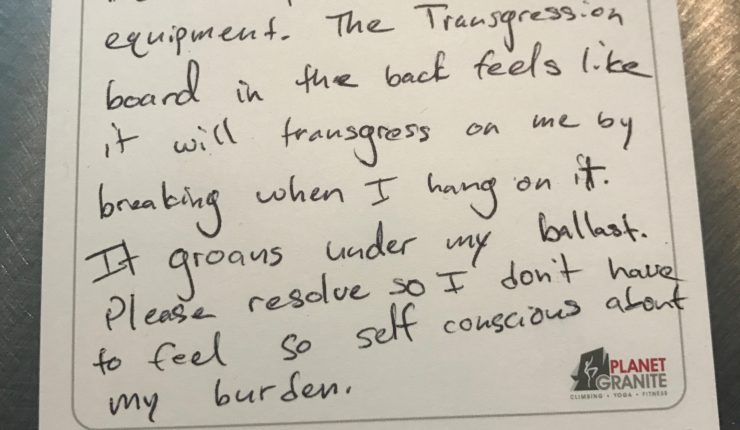 equipment. The Transgression
board in the back feels like
it will transgress on me by
breaking when I hang on it.
It groans under my ballast.
Please resolve so I don't have
to feel so self conscious about
my burden.
PLANET
GRANITE
CLIMBING • YOGA • FITNESS